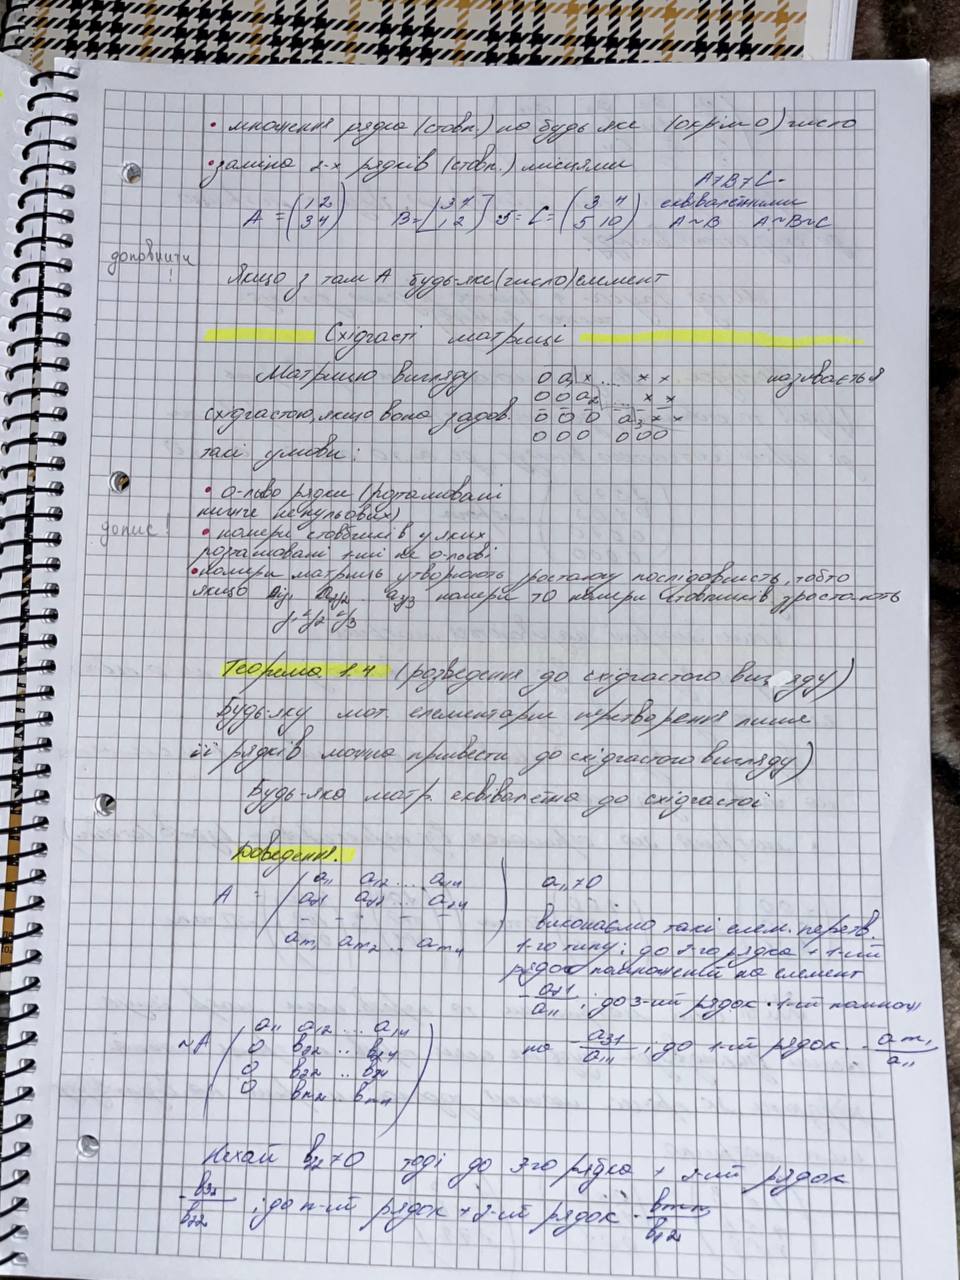 • множення рядка (ствп.) на будь яке (окрім 0) число
• заміна 2-х рядків (ствп.) місцями
A≠B≠C -
A = (1 2 / 3 4) B = [3 4 / 1 2] C = (3 4 / 5 10) еквівалетними
A~B A~B~C
доповнити !
Якщо з там A будь-яке (число) елемент
Східчасті матриці
Матрицю вигляду 0 a₁ x ... x x називається
0 0 a₂ ... x x
східчастою, якщо вона задов. 0 0 0 a₃ x x
0 0 0 0 0 0
такі умови:
• 0-льво рядки (розташовані
нижче ненульових)
допис!
• номери стовбчиків у яких
розташовані 1-ші не 0-льові
• номери матриць утворюють зростаючу послідовність, тобто
якщо номери то номери стовпчиків зростають
j₁<j₂<j₃
Теорема 1.4 (розведення до східчастого вигляду)
Будь-яку мат. елементарні перетворення лише
її рядків можна привести до східчастого вигляду)
Будь-яка матр. еквівалетна до східчастої
Доведення.
A = (a₁₁ a₁₂ ... a₁ₙ a₁₁≠0
a₂₁ a₂₂ ... a₂ₙ
виконаємо такі елем. перетв.
aₘ₁ aₘ₂ ... aₘₙ) 1-го типу: до 2-го рядка + 1-ий
рядок помножений на елемент
-a₂₁/a₁₁ ; до 3-ий рядок · 1-ий помнож
~A (a₁₁ a₁₂ ... a₁ₙ
0 b₂₂ .. b₂ₙ на -a₃₁/a₁₁ ; до 1-ий рядок · -aₘ₁/a₁₁
0 b₃₂ .. b₃ₙ
0 bₘ₂ .. bₘₙ)
Нехай b₂₂≠0 тоді до 3-го рядка + 2-ий рядок
-b₃₂/b₂₂ ; до n-ий рядок + 2-ий рядок ·